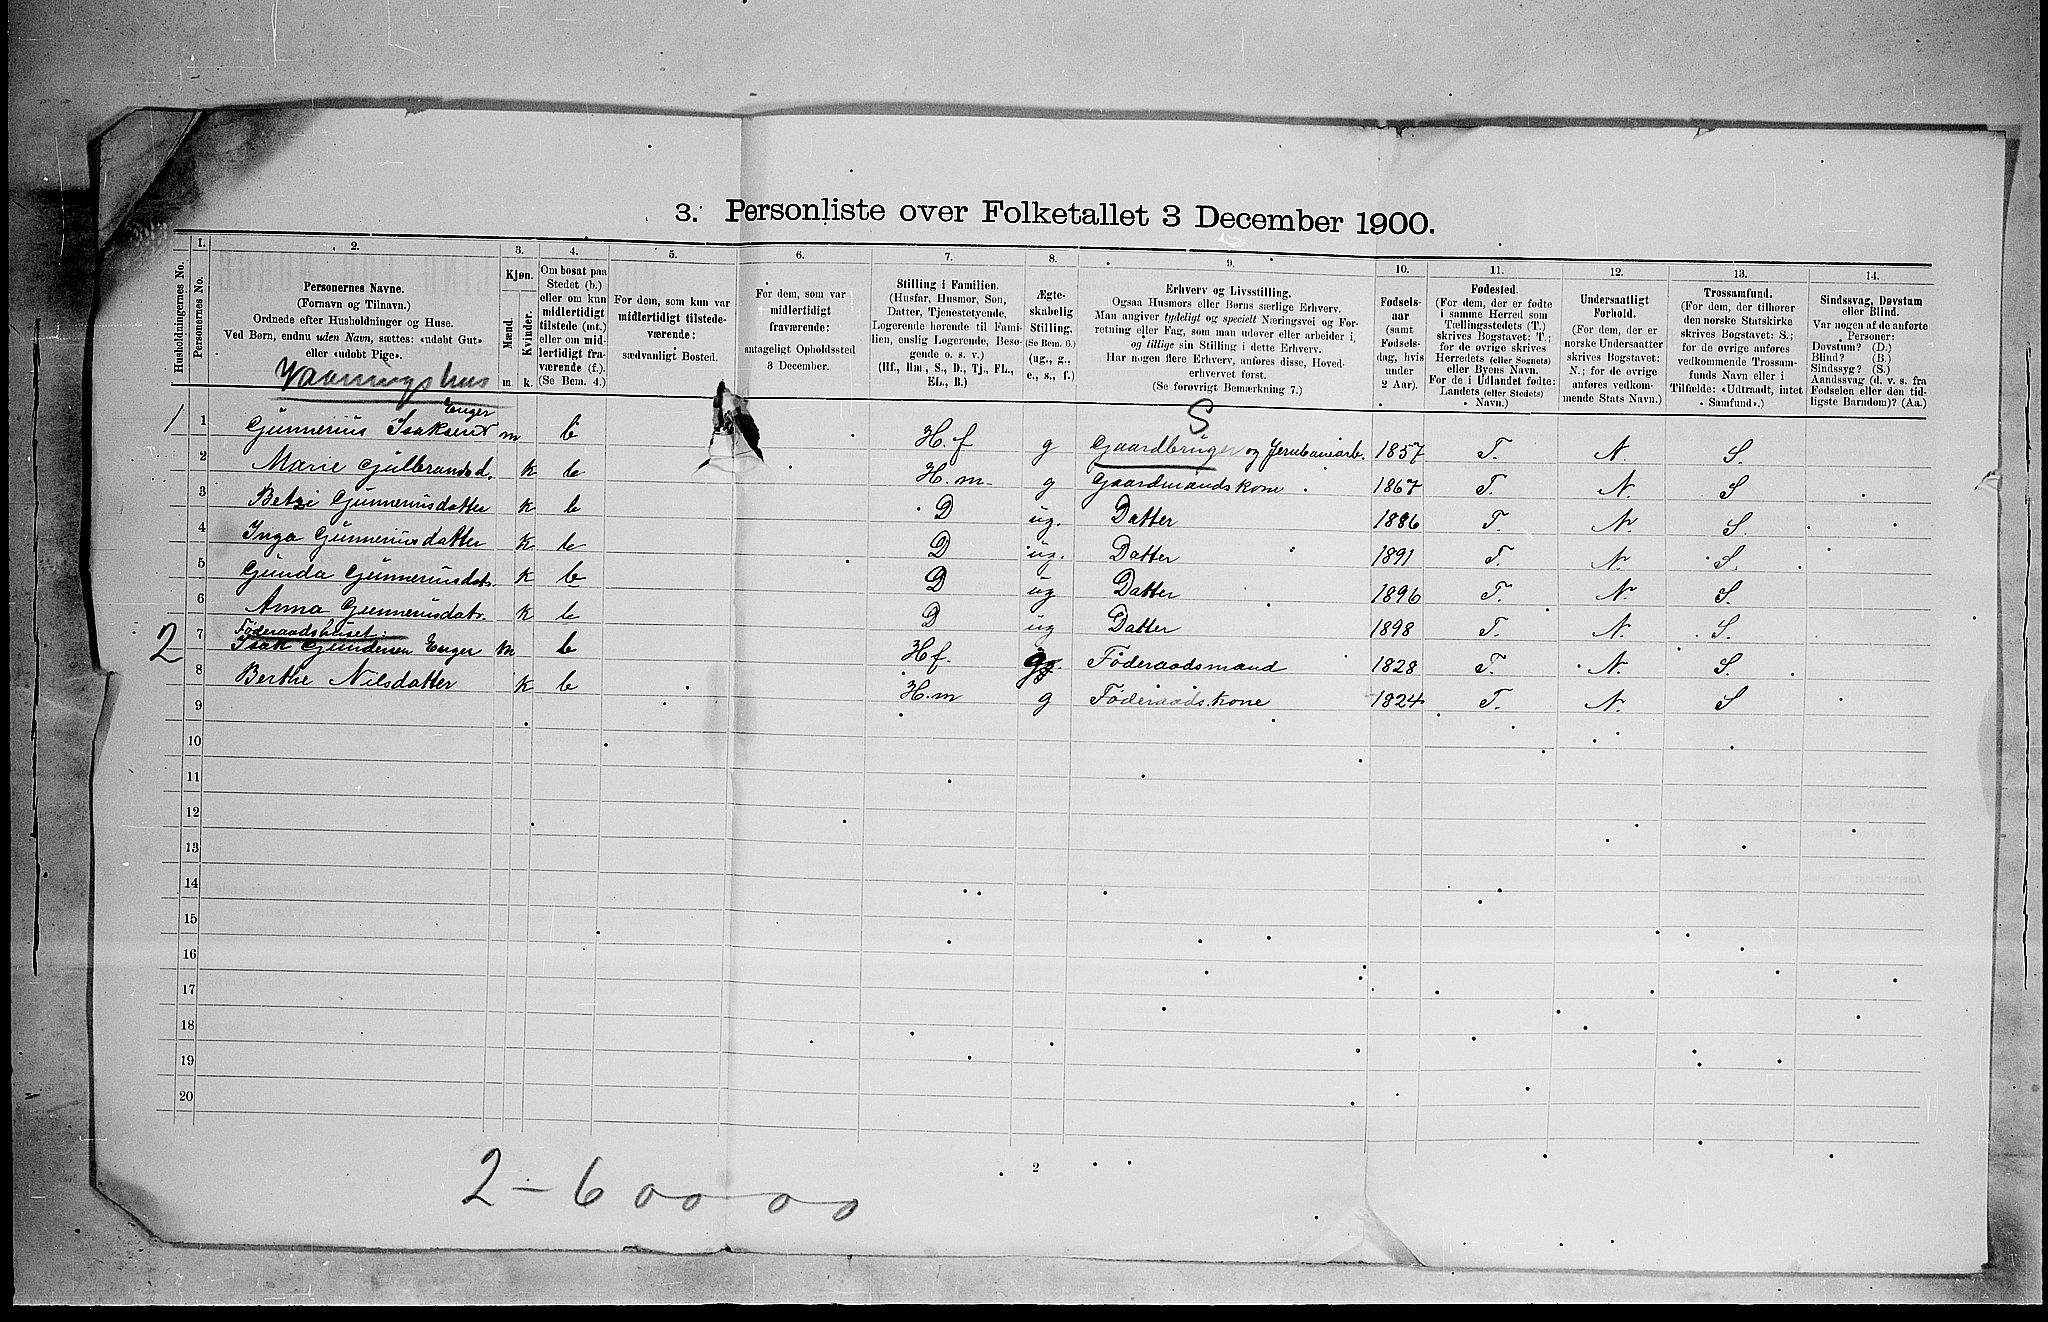 3. Personliste over Folketallet 3 December 1900.
Husholdningernes No.
1.
Personernes No.
2.
Personernes Navne.
(Fornavn og Tilnavn.)
Ordnede efter Husholdninger og Huse.
Ved Børn, endnu uden Navn, sættes: «udøbt Gut»
eller «udøbt Pige».
Vaaningshus
3.
Kjøn.
Mænd.
Kvinder.
m. k.
4.
Om bosat paa
Stedet (b.)
eller om kun
midlertidigt
tilstede (mt.)
eller om mid-
lertidigt fra-
værende (f.).
(Se Bem. 4.)
5.
For dem, som kun var
midlertidigt tilstede-
værende:
sædvanligt Bosted.
6.
For dem, som var
midlertidigt
fraværende:
antageligt Opholdssted
3 December.
7.
Stilling i Familien.
(Husfar, Husmor, Søn,
Datter, Tjenestetyende,
Logerende hørende til Fami-
lien, enslig Logerende, Besø-
gende o. s. v.)
(Hf., Hm., S., D., Tj., FL.,
EL., B.)
8.
Ægte-
skabelig
Stilling.
(Se Bem. 6.)
(ug., g.,
e., s., f.)
9.
Erhverv og Livsstilling.
Ogsaa Husmors eller Børns særlige Erhverv.
Man angiver tydeligt og specielt Næringsvei og For-
retning eller Fag, som man udøver eller arbeider i,
og tillige sin Stilling i dette Erhverv.
Har nogen flere Erhverv, anføres disse, Hoved-
erhvervet først.
(Se forøvrigt Bemærkning 7.)
10.
Fødsels-
aar
(samt
Fødsels-
dag, hvis
under
2 Aar).
11.
Fødested.
(For dem, der er fødte
i samme Herred som
Tællingsstedets (T.)
skrives Bogstavet: T.;
for de øvrige skrives
Herredets (eller Sognets)
eller Byens Navn.
For de i Udlandet fødte:
Landets (eller Stedets)
Navn.)
12.
Undersaatligt
Forhold.
(For dem, der er
norske Undersaatter
skrives Bogstavet:
N.; for de øvrige
anføres vedkom-
mende Stats Navn.)
13.
Trossamfund.
(For dem, der tilhører
den norske Statskirke
skrives Bogstavet: S.;
for de øvrige anføres
vedkommende Trossam-
funds Navn eller i
Tilfælde: «Udtraadt, intet
Samfund».)
14.
Sindssvag, Døvstum
eller Blind.
Var nogen af de anførte
Personer:
Døvstum? (D.)
Blind? (B.)
Sindssyg? (S.)
Aandssvag (d. v. s. fra
Fødselen eller den tid-
ligste Barndom)? (Aa.)
S
Enger
1 1 Gunnerius Isaksen m b H. f g Gaardbruger og Jernbanearb. 1857 T. N. S.
2 Marie Gulbrandsd. k b H. m g Gaardmandskone 1867 T. N. S
3 Betzi Gunneriusdatter k b D ug. Datter 1886 T. N. S.
4 Inga Gunneriusdatter k b D ug. Datter 1891 T. N. S.
5 Gunda Gunneriusdatr. k b D ug Datter 1896 T. N. S.
6 Anna Gunneriusdatr. k b D ug Datter 1898 T. N. S.
Føderaadshuset:
2 7 Isak Gundersen Enger m b Hf. g. Føderaadsmand 1828 T. N. S.
8 Berthe Nilsdatter k b H. m g Føderaadskone 1824 T. N. S
9
10
11
12
13
14
15
16
17
18
19
20
2
2 - 6 00 - 00